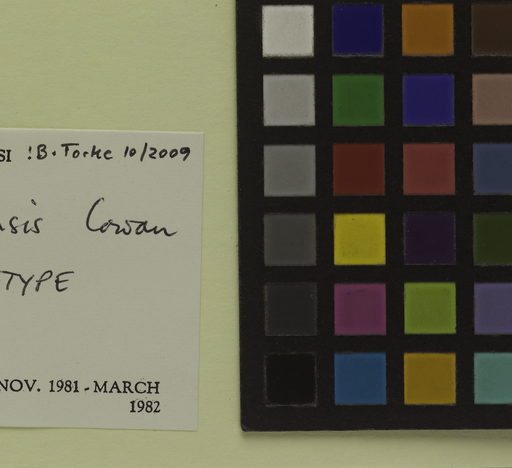 SI !B. Torke 10/2009
nsis Cowan
TYPE
NOV. 1981 - MARCH
1982